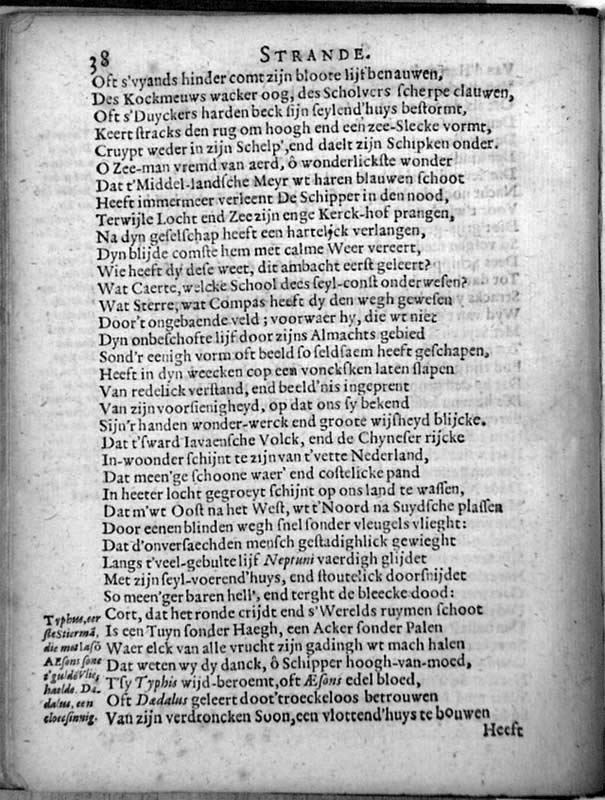 38 STRANDE.
Oft s'vyands hinder comt zijn bloote lijf benauwen,
Des Kockmeuws wacker oog, des Scholvers scherpe clauwen,
Oft s'Duyckers harden beck sijn seylend'huys bestormt,
Keert stracks den rug om hoogh end een zee-Slecke vormt,
Cruypt weder in zijn Schelp', end daelt zijn Schipken onder.
O Zee-man vremd van aerd, ô wonderlickste wonder
Dat t'Middel-landsche Meyr wt haren blauwen schoot
Heeft immermeer verleent De Schipper in den nood,
Terwijle Locht end Zee zijn enge Kerck-hof prangen,
Na dyn geselschap heeft een hartelijck verlangen,
Dyn blijde comste hem met calme Weer vereert,
Wie heeft dy dese weet, dit ambacht eerst geleert?
Wat Caerte, welcke School dees seyl-const onderwesen?
Wat Sterre, wat Compas heeft dy den wegh gewesen
Door't ongebaende veld; voorwaer hy, die wt niet
Dyn onbeschofte lijf door zijns Almachts gebied
Sond'r eenigh vorm oft beeld so seldsaem heeft geschapen,
Heeft in dyn weecken cop een voncksken laten slapen
Van redelick verstand, end beeld'nis ingeprent
Van zijn voorsienigheyd, op dat ons sy bekend
Sijn'r handen wonder-werck end groote wijsheyd blijcke.
Dat t'sward Iavaensche Volck, end de Chyneser rijcke
In-woonder schijnt te zijn van t'vette Nederland,
Dat meen'ge schoone waer' end costelicke pand
In heeter locht gegroeyt schijnt op ons land te wassen,
Dat m'wt Oost na het West, wt t'Noord na Suydsche plassen
Door eenen blinden wegh snel sonder vleugels vlieght:
Dat d'onversaechden mensch gestadighlick gewieght
Langs t'veel-gebulte lijf Neptuni vaerdigh glijdet
Met zijn seyl-voerend'huys, end stoutelick doorsnijdet
So meen'ger baren hell', end terght de bleecke dood:
Cort, dat het ronde crijdt end s'Werelds ruymen schoot
Is een Tuyn sonder Haegh, een Acker sonder Palen
Waer elck van alle vrucht zijn gadingh wt mach halen
Dat weten wy dy danck, ô Schipper hoogh-van-moed,
T'sy Typhis wijd-beroemt, oft Æsons edel bloed,
Oft Dædalus geleert doot'troeckeloos betrouwen
Van zijn verdroncken Soon, een vlottend'huys te bouwen
Heeft
Typhus, eer
ste Stiermā,
die met Iasō
AEsons sone
t'guldē Vlies
haelde. Dæ
dalus, een
cloecsinnig.